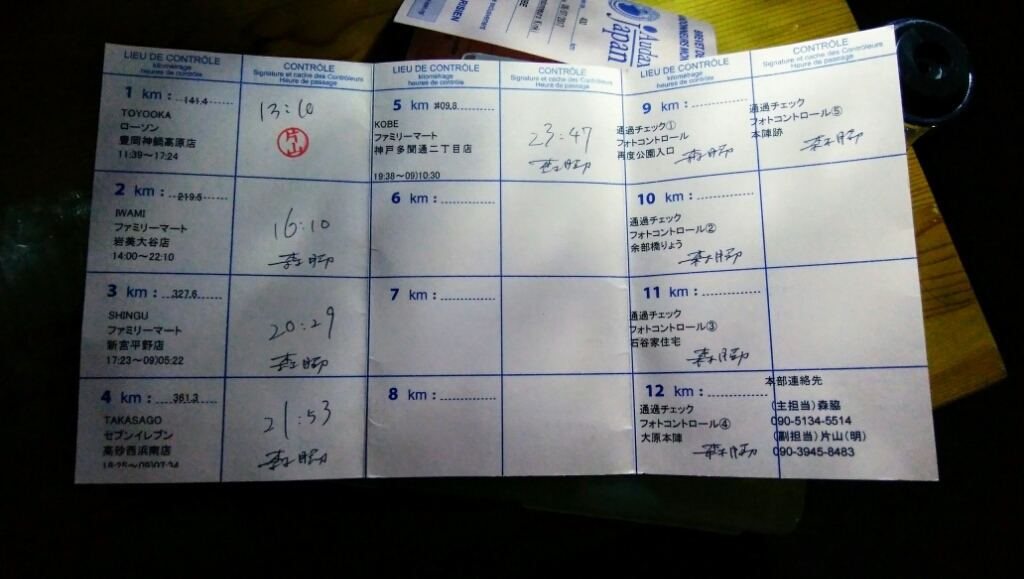 LIEU DE CONTRÔLE
kilométrage
heures de contrôle
CONTRÔLE
Signature et cache des Contrôleurs
Heure de passage
1 km : 141.4
TOYOOKA
ローソン
豊岡神鍋高原店
11:39～17:24
13:10
片山
2 km : 219.5
IWAMI
ファミリーマート
岩美大谷店
14:00～22:10
16:10
森脇
3 km : 327.6
SHINGU
ファミリーマート
新宮平野店
17:23～09)05:22
20:29
森脇
4 km : 361.3
TAKASAGO
セブンイレブン
高砂西浜南店
18:25～09)07:34
21:53
森脇
LIEU DE CONTRÔLE
kilométrage
heures de contrôle
CONTRÔLE
Signature et cache des Contrôleurs
Heure de passage
5 km : 409.8
KOBE
ファミリーマート
神戸多聞通二丁目店
19:38～09)10:30
23:47
森脇
6 km :
7 km :
8 km :
LIEU DE CONTRÔLE
kilométrage
heures de contrôle
CONTRÔLE
Signature et cache des Contrôleurs
Heure de passage
9 km :
通過チェック①
フォトコントロール
再度公園入口
森脇
通過チェック
フォトコントロール⑤
本陣跡
森脇
10 km :
通過チェック
フォトコントロール②
余部橋りょう
森脇
11 km :
通過チェック
フォトコントロール③
石谷家住宅
森脇
12 km :
通過チェック
フォトコントロール④
大原本陣
森脇
本部連絡先
(主担当)森脇
090-5134-5514
(副担当)片山(明)
090-3945-8483
Audax
Japan